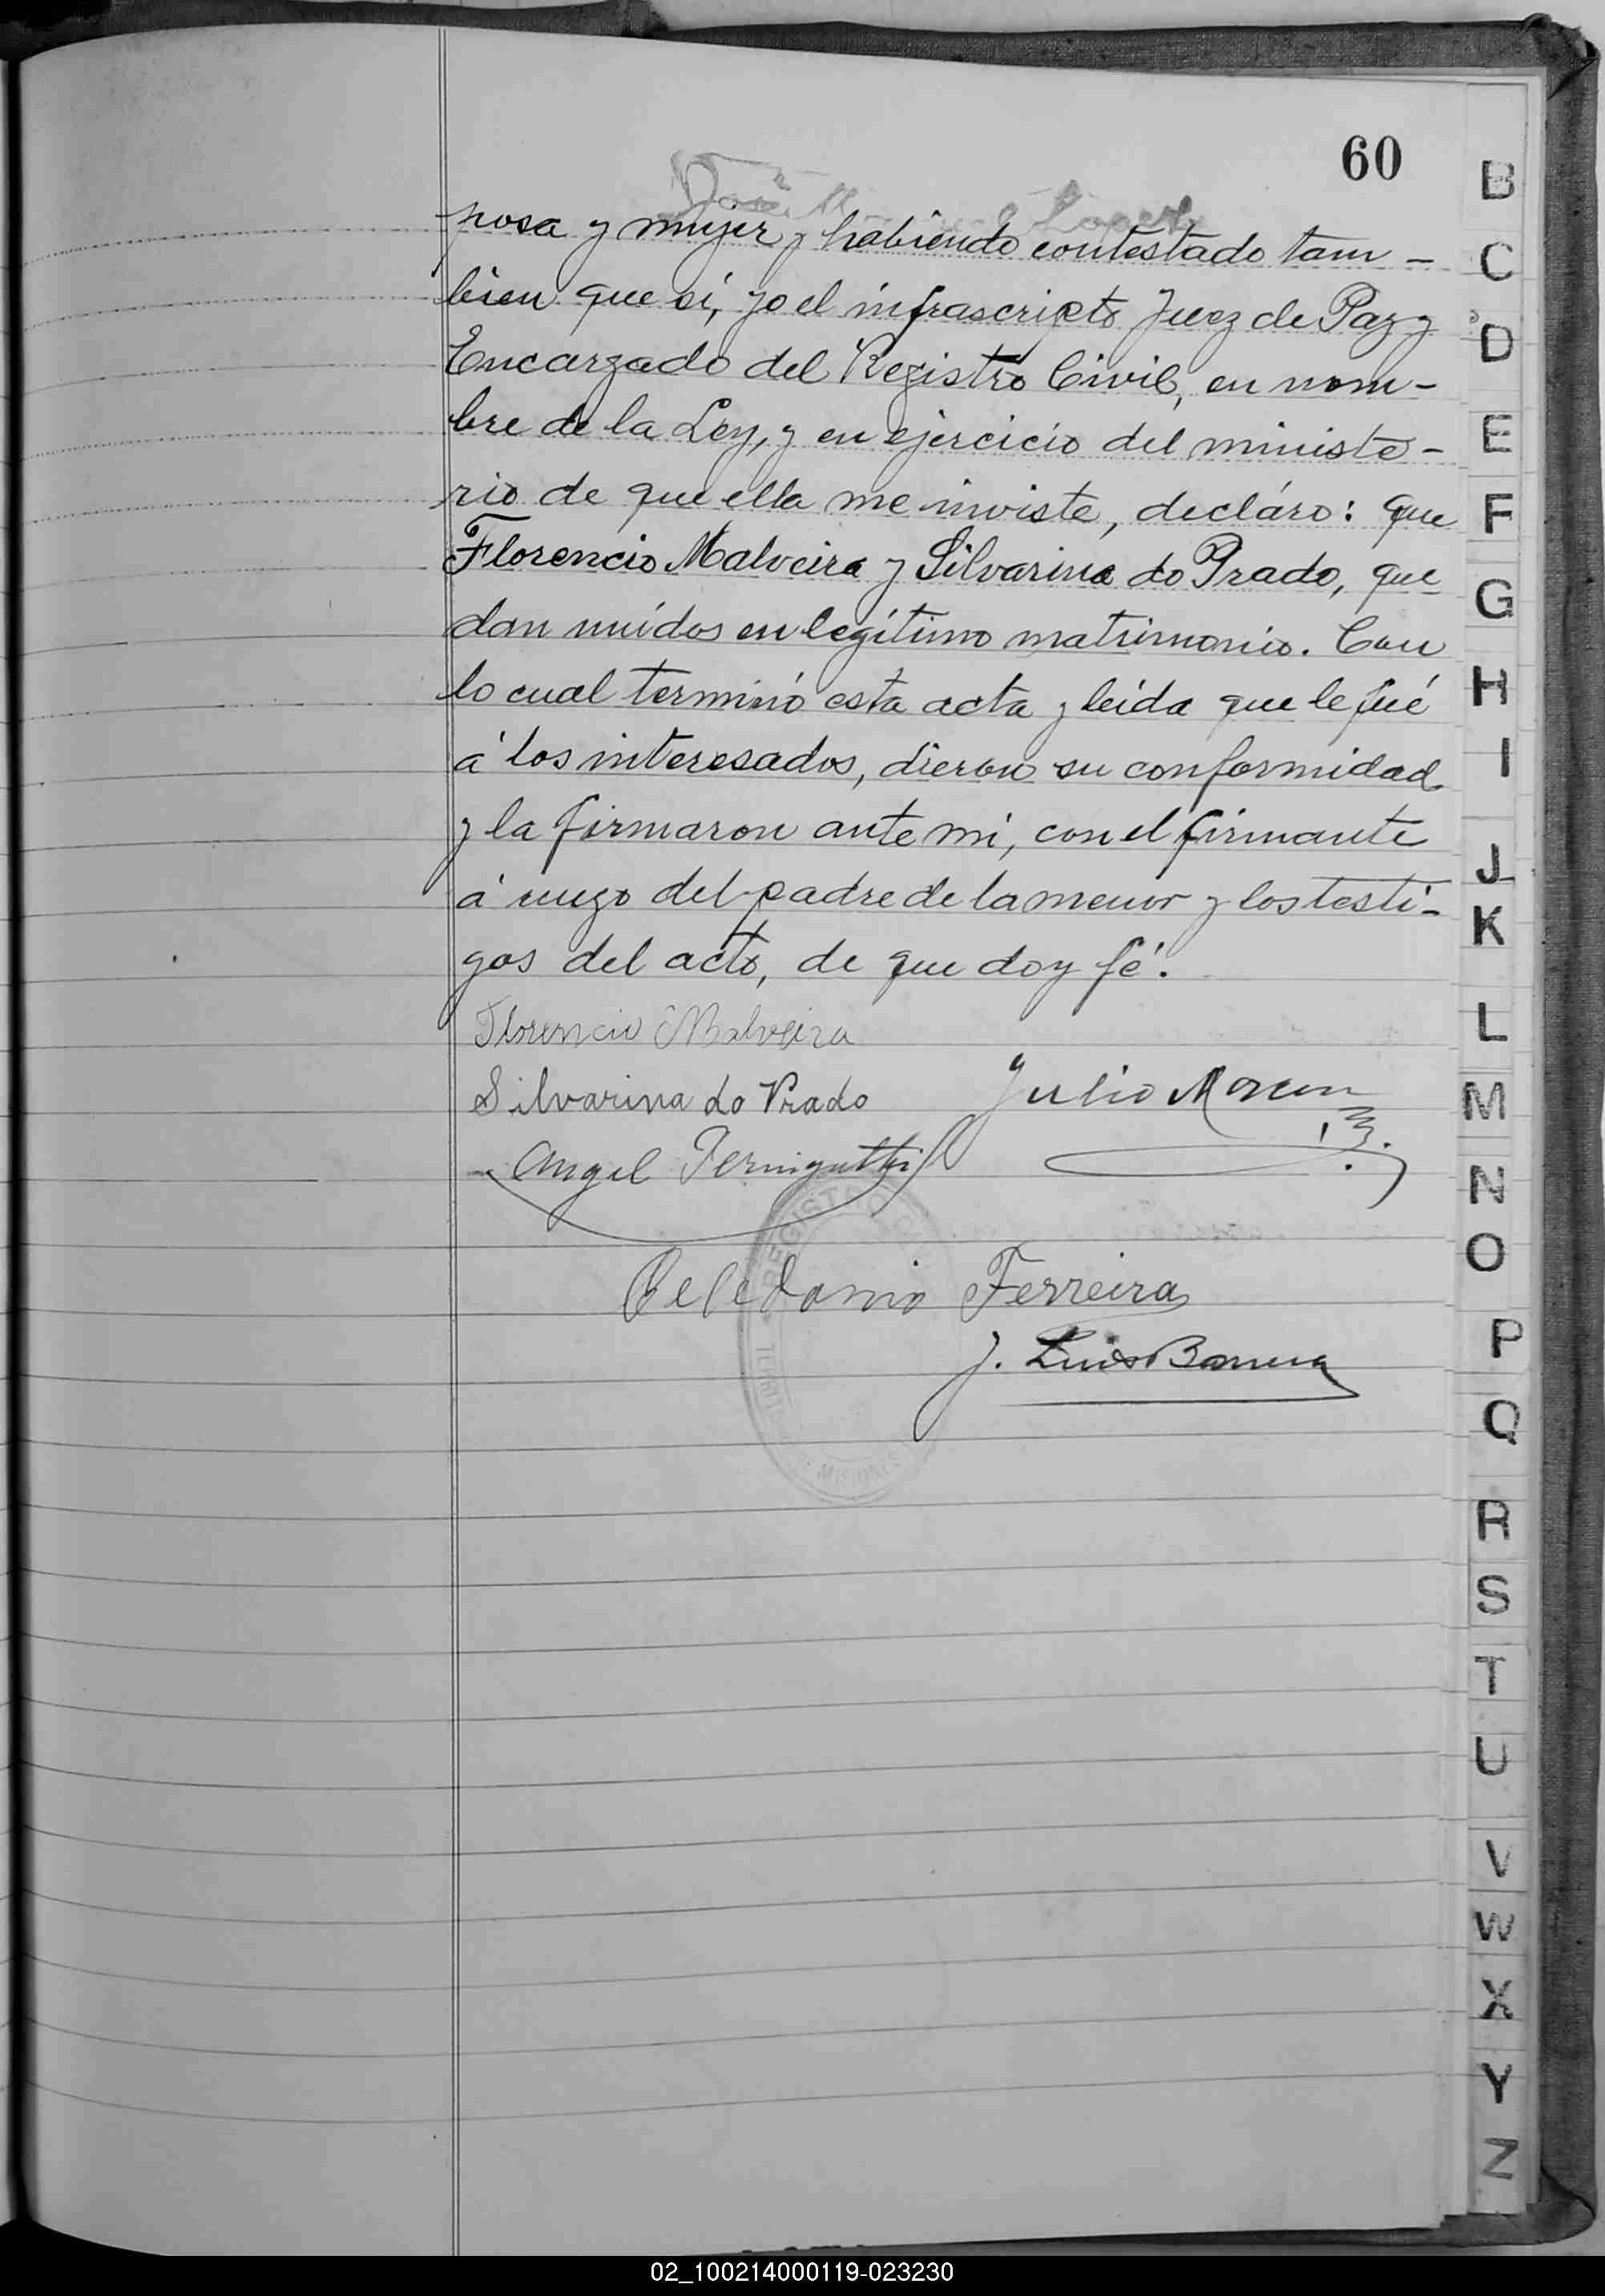 60
José M Lopez
posa y mujer, y habiendo contestado tam-
bien que sí, yo el infrascripto Juez de Paz y
Encargado del Registro Civil, en nom-
bre de la Ley, y en ejercicio del ministe-
rio de que ella me inviste, decláro: que
Florencio Malveira y Silvarina do Prado, que
dan unídos en legítimo matrimonio. Con
lo cual terminó esta acta y leida que le fué
á los interesados, dieron su conformidad
y la firmaron ante mi, con el firmante
á ruego del padre de la menor y los testi-
gos del acto, de que doy fé.
Florencio Malveira
Silvarina do Prado Julio Moreau
Angel
Celedonio Ferreira
J. Luis
REGISTRO
DE MISIONES
B
C
D
E
F
G
H
I
J
K
L
M
N
O
P
Q
R
S
T
U
V
W
X
Y
Z
02_100214000119-023230